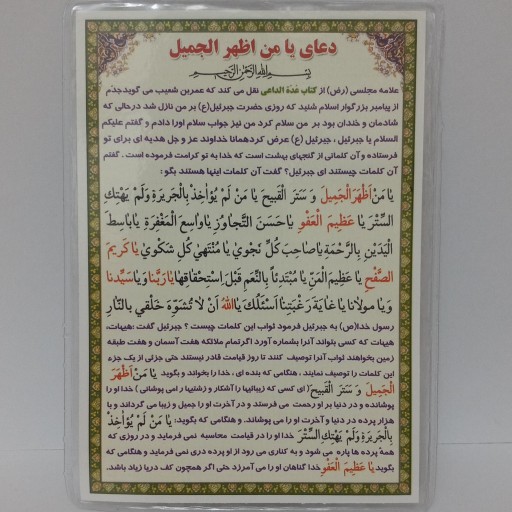 دعای یا من اظهر الجمیل
بسم الله الرحمن الرحیم
علامه مجلسی (رض) از کتاب عدّة الداعی نقل می کند که عمربن شعیب می گویدجدّم
از پیامبر بزرگوار اسلام شنید که روزی حضرت جبرئیل(ع) بر من نازل شد درحالی که
شادمان و خندان بود بر من سلام کرد من نیز جواب سلام اورا دادم و گفتم علیکم
السلام یا جبرئیل ، جبرئیل (ع) عرض کردهمانا خداوند عز و جل هدیه ای برای تو
فرستاده و آن کلماتی از گنجهای بهشت است که خدا به تو کرامت فرموده است . گفتم
آن کلمات چیستند ای جبرئیل؟ گفت آن کلمات اینها هستند بگو :
یا مَنْ اَظْهَرَ الْجَمیلَ وَ سَتَرَ الْقَبیحَ یا مَنْ لَمْ یُؤاخِذْ بِالْجَریرَةِ وَلَمْ یَهْتِکِ
السِّتْرَ یا عَظیمَ الْعَفْوِ یا حَسَنَ التَّجاوُزِ یا واسِعَ الْمَغْفِرَةِ یا باسِطَ
الْیَدَیْنِ بِالرَّحْمَةِ یا صاحِبَ کُلِّ نَجْوی یا مُنْتَهی کُلِّ شَکْوی یا کَریمَ
الصَّفْحِ یا عَظیمَ الْمَنِّ یا مُبْتَدِئاً بِالنِّعَمِ قَبْلَ اِسْتِحْقاقِها یا رَبَّنا وَ یا سَیِّدَنا
وَ یا مَولانا یا غایَةَ رَغْبَتِنا اَسْئَلُکَ یا اَللهُ اَنْ لا تُشَوِّهَ خَلْقی بِالنّارِ
رسول خدا(ص) به جبرئیل فرمود ثواب این کلمات چیست ؟ جبرئیل گفت :هیهات،
هیهات که کسی بتواند آنرا بشماره آورد اگرتمام ملائکه هفت آسمان و هفت طبقه
زمین بخواهند ثواب آنرا توصیف کنند تا روز قیامت قادر نیستند حتی جزئی از یک جزء
این کلمات را توصیف نمایند ، هنگامی که بنده ای ، خدا را بخواند و بگوید یا مَنْ اَظْهَرَ
الْجَمیلَ وَ سَتَرَ الْقَبیحَ( ای کسی که زیبائیها را آشکار و زشتیها را می پوشانی ) خدا او را
پوشانده و در دنیا بر او رحمت می فرستد و در آخرت او را جمیل و زیبا می گرداند و با
هزار پرده در دنیا و آخرت او را می پوشاند. و هنگامی که بگوید: یا مَنْ لَمْ یُؤاخِذْ
بِالْجَریرَةِ وَلَمْ یَهْتِکِ السِّتْرَ خدا او را در قیامت محاسبه نمی فرماید و در روزی که
همهٔ پرده ها پاره می شود و به کناری می رود از او پرده دری نمی فرماید و هنگامی که
بگوید یا عَظیمَ الْعَفْوِ خدا گناهان او را می آمرزد حتی اگر همچون کف دریا زیاد باشد.